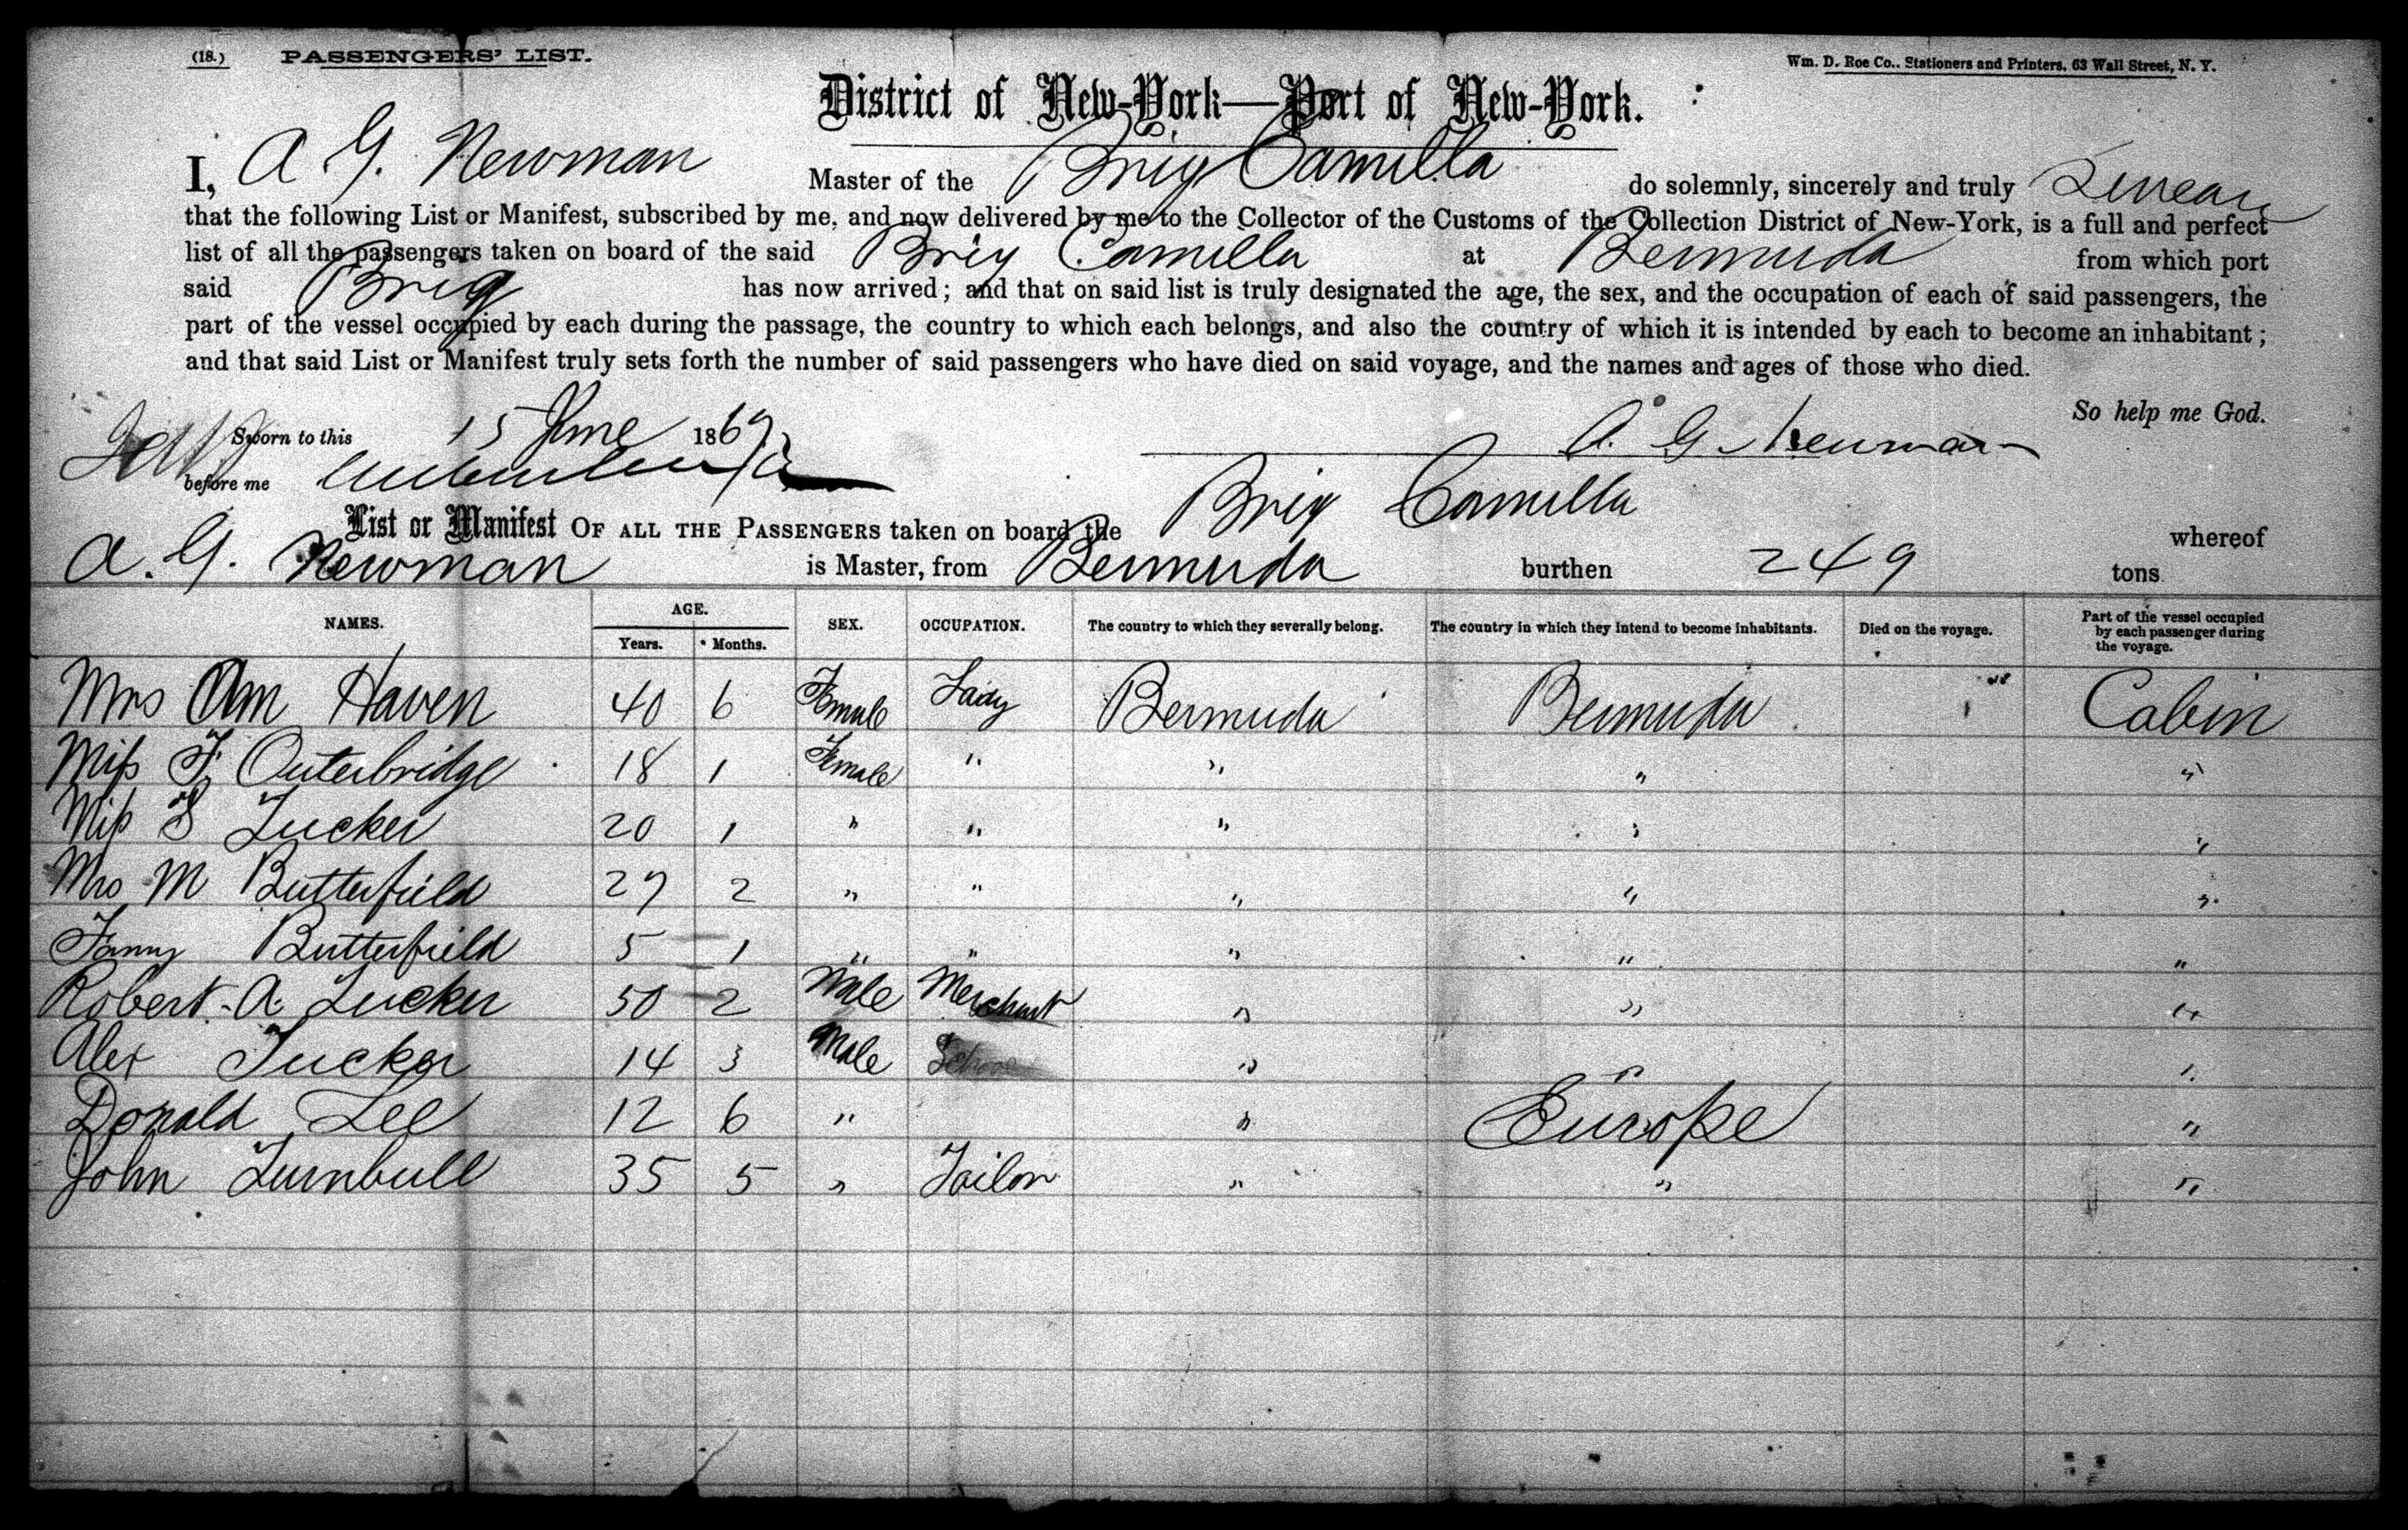 (18.) PASSENGERS' LIST. Wm. D. Roe Co., Stationers and Printers, 63 Wall Street, N. Y.
District of New-York—Port of New-York.
I, A G. Newman Master of the Brig Camilla do solemnly, sincerely and truly Swear
that the following List or Manifest, subscribed by me, and now delivered by me to the Collector of the Customs of the Collection District of New-York, is a full and perfect
list of all the passengers taken on board of the said Brig Camilla at Bermuda from which port
said Brig has now arrived; and that on said list is truly designated the age, the sex, and the occupation of each of said passengers, the
part of the vessel occupied by each during the passage, the country to which each belongs, and also the country of which it is intended by each to become an inhabitant;
and that said List or Manifest truly sets forth the number of said passengers who have died on said voyage, and the names and ages of those who died.
So help me God.
Sworn to this 15 June 1869
A. G Newman
before me
List or Manifest OF ALL THE PASSENGERS taken on board the Brig Camilla whereof
A. G. Newman is Master, from Bermuda burthen 249 tons
NAMES. AGE. Years. Months. SEX. OCCUPATION. The country to which they severally belong. The country in which they intend to become inhabitants. Died on the voyage. Part of the vessel occupied by each passenger during the voyage.
Mrs Am Haven 40 6 Female Lady Bermuda Bermuda Cabin
Miss F Outerbridge 18 1 Female " " " "
Miss S Tucker 20 1 " " " " "
Mrs M Butterfield 27 2 " " " " "
Fanny Butterfield 5 1 " " " " "
Robert A Tucker 50 2 Male Merchant " " "
Alex Tucker 14 3 Male " " "
Donald Lee 12 6 " " Europe "
John Turnbull 35 5 " Tailor " " "